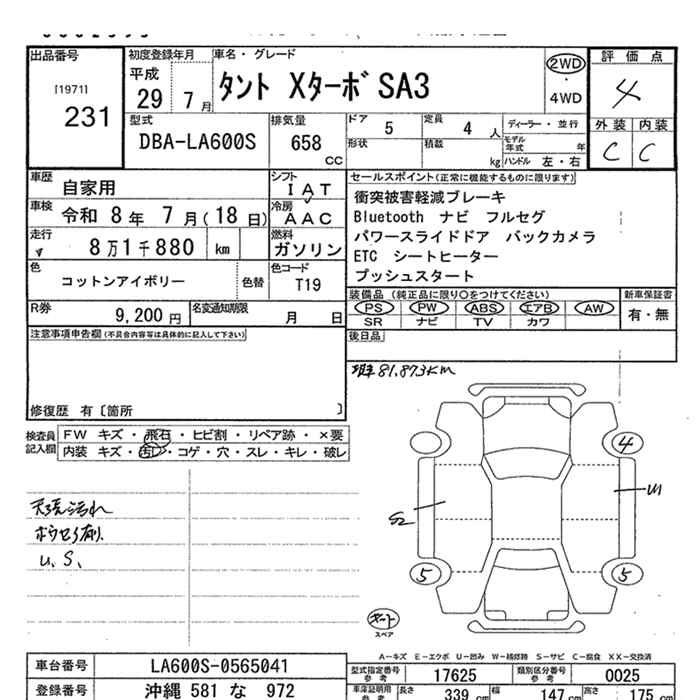 出品番号 初度登録年月 車名・グレード 評価点
[1971] 231
平成 29 7月
タント Xターボ SA3
2WD ・ 4WD
4
型式 DBA-LA600S
排気量 658 CC
ドア 5 定員 4 人 ディーラー・並行
形状 積載 kg モデル年式 年 ハンドル 左・右
外装 内装
C C
車歴 自家用
シフト IAT
車検 令和 8年 7月(18日)
冷房 AAC
走行 8万1千880 km
燃料 ガソリン
色 コットンアイボリー 色替
色コード T19
R券 9,200円 名変通知期限 月 日
セールスポイント(正常に機能するものに限ります)
衝突被害軽減ブレーキ
Bluetooth ナビ フルセグ
パワースライドドア バックカメラ
ETC シートヒーター
プッシュスタート
装備品(純正品に限り○をつけてください) 新車保証書
PS PW ABS エアB AW 有・無
SR ナビ TV カワ
後日品
注意事項申告欄(不具合内容等は具体的に記入して下さい)
修復歴 有〔箇所 〕
81,873km
検査員記入欄
FW キズ・飛石・ヒビ割・リペア跡・×要
内装 キズ・汚れ・コゲ・穴・スレ・キレ・破レ
天張汚れ
U、S、
4
U1
S2
5 5
スペア
A-キズ E-エクボ U-凹み W-補修跡 S-サビ C-腐食 XX-交換済
車台番号 LA600S-0565041
型式指定番号 参考 17625 類別区分番号 参考 0025
登録番号 沖縄 581 な 972
車庫証明用 参考 長さ 339 cm 幅 147 cm 高さ 175 cm